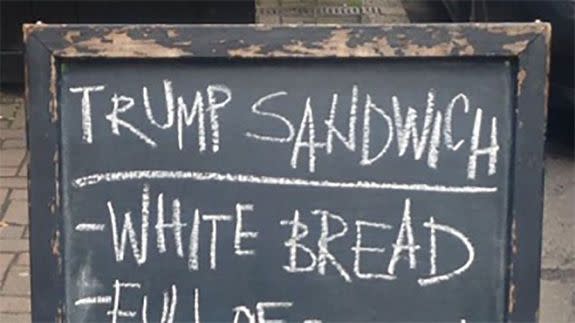 TRUMP SANDWICH
-WHITE BREAD
-FULL OF